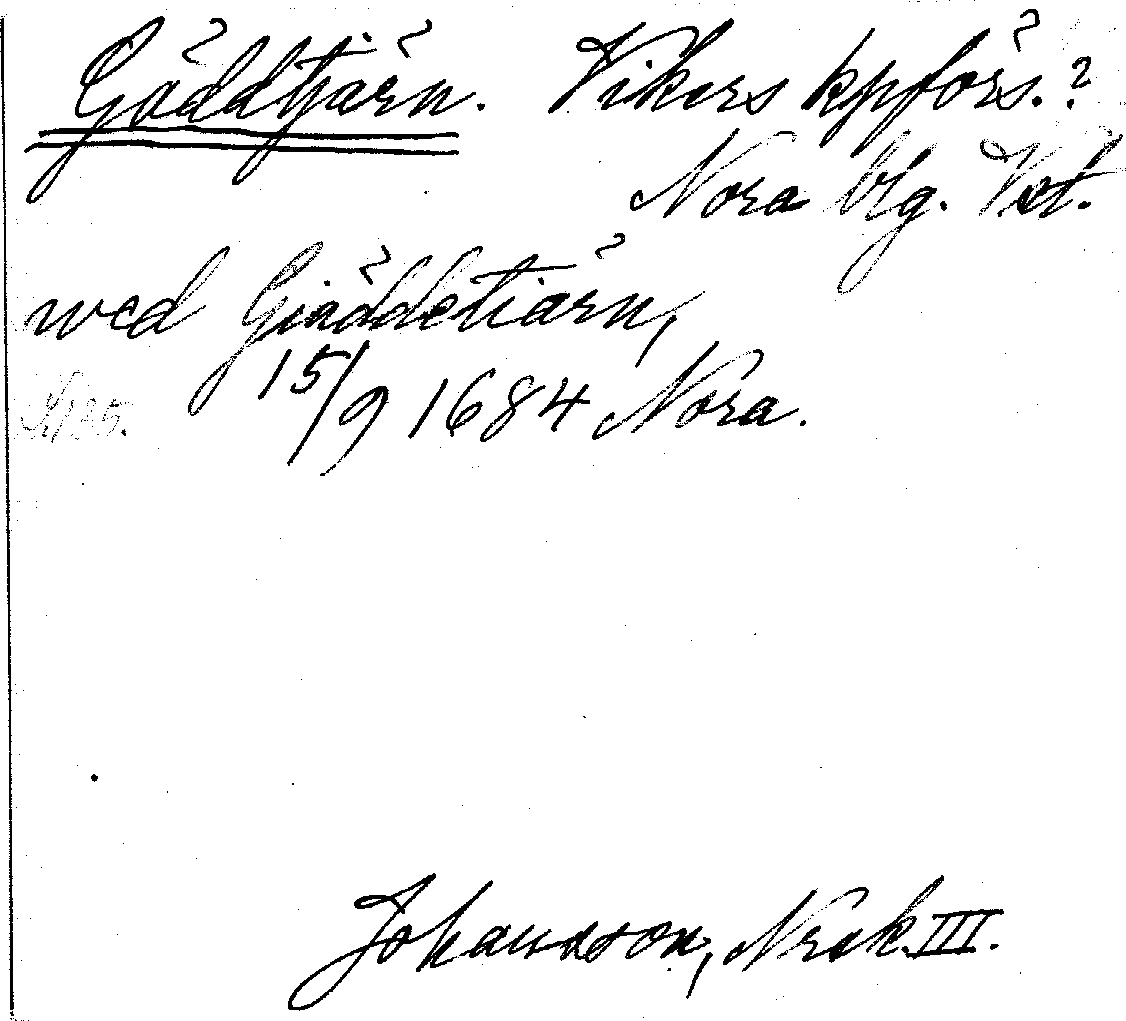 Gäddtjärn. Vikers kpförs.?
Nora blg. Vst.
wed Giäddetiärn,
15/9 1684 Nora.
Johansson, Nrsk. III.